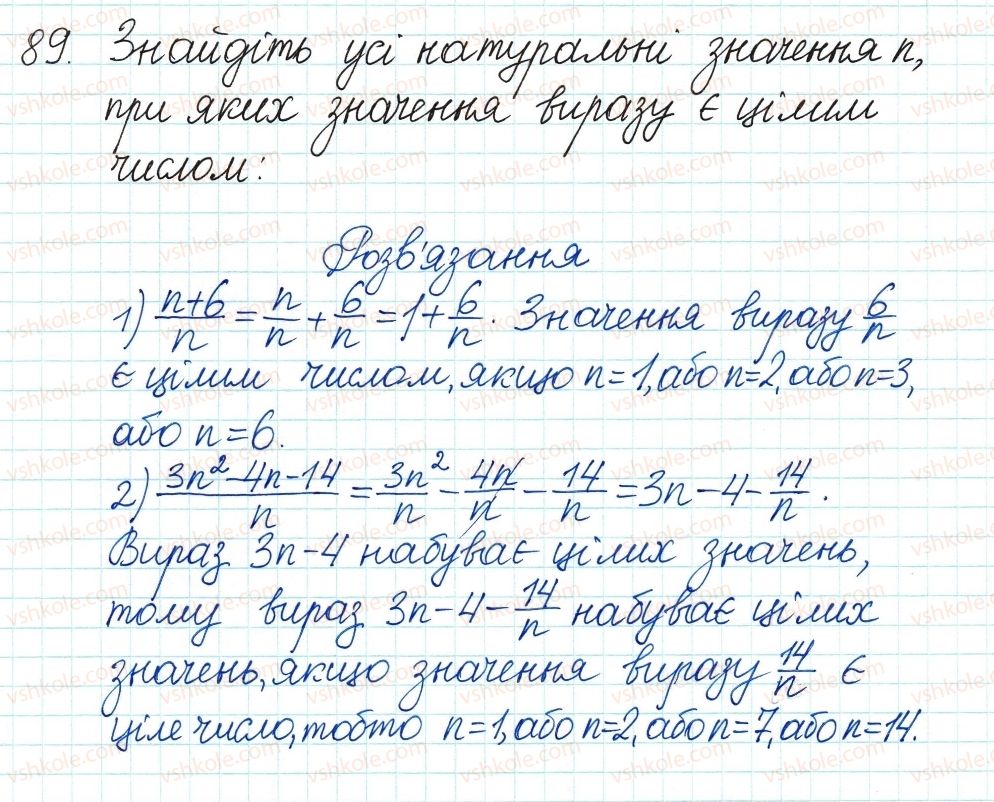 89. Знайдіть усі натуральні значення n,
при яких значення виразу є цілим
числом:
Розв'язання
1) (n+6)/n = n/n + 6/n = 1 + 6/n. Значення виразу 6/n
є цілим числом, якщо n=1, або n=2, або n=3,
або n=6.
2) (3n²-4n-14)/n = 3n²/n - 4n/n - 14/n = 3n-4-14/n.
Вираз 3n-4 набуває цілих значень,
тому вираз 3n-4-14/n набуває цілих
значень, якщо значення виразу 14/n є
ціле число, тобто n=1, або n=2, або n=7, або n=14.